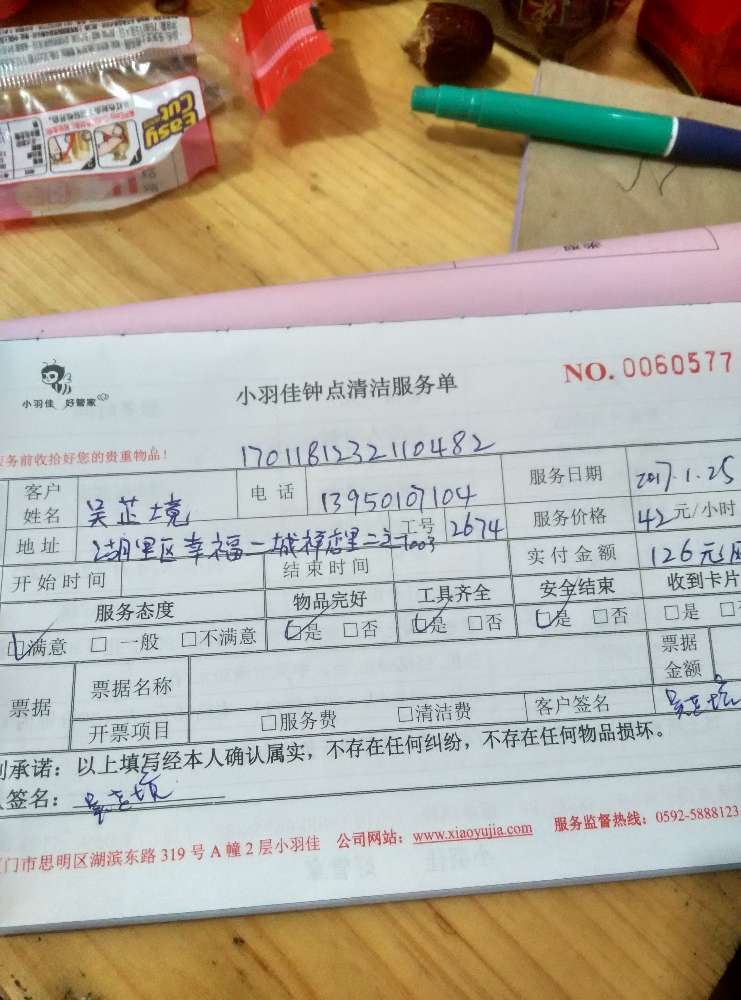 Easy
Cut
小羽佳 好管家
小羽佳钟点清洁服务单
NO. 0060577
务前收拾好您的贵重物品！
1701181232110482
客户姓名 吴芷境 电话 13950107104 服务日期 2017.1.25
地址 湖里区幸福一城祥店里 工号 2674 服务价格 42元/小时
1003
开始时间 结束时间 实付金额 126元
服务态度 物品完好 工具齐全 安全结束 收到卡片
☑满意 □一般 □不满意 ☑是 □否 ☑是 □否 ☑是 □否 □是
票据 票据名称 票据金额
开票项目 □服务费 □清洁费 客户签名 吴芷境
承诺：以上填写经本人确认属实，不存在任何纠纷，不存在任何物品损坏。
签名：吴芷境
门市思明区湖滨东路 319 号 A 幢 2 层小羽佳 公司网站：www.xiaoyujia.com 服务监督热线：0592-5888123